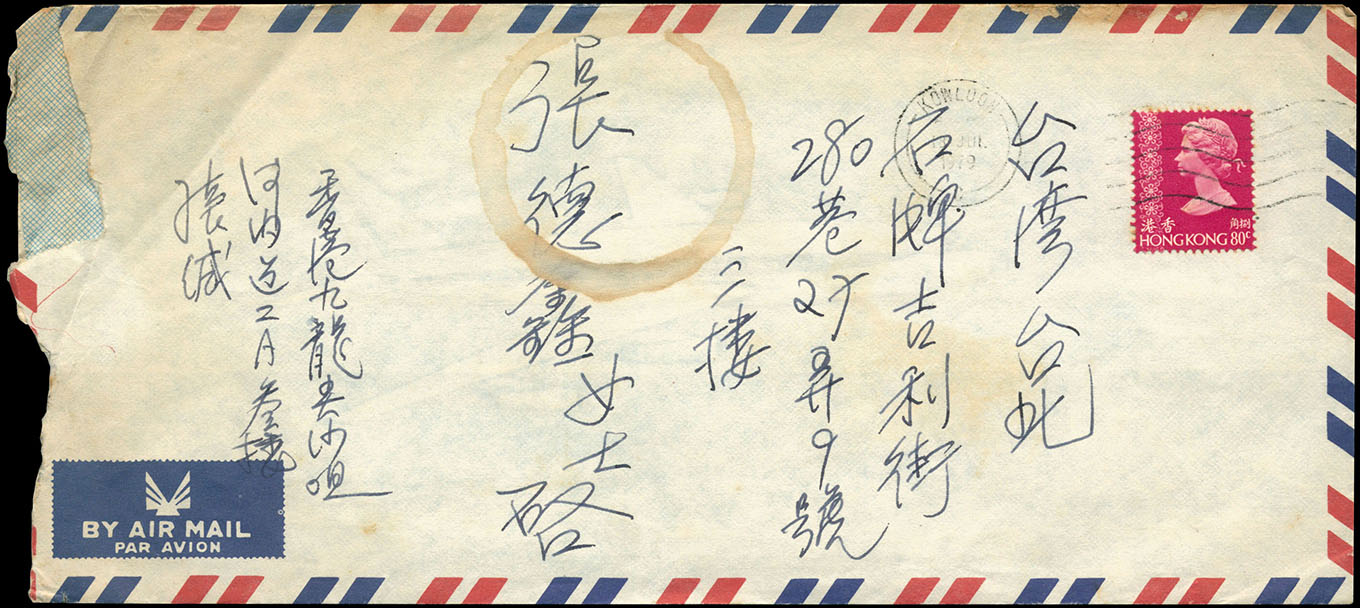 KOWLOON
JUL.
1979
香港
捌角
HONG KONG 80c
台湾台北
石牌吉利街
280巷27弄9號
三樓
張德鑫女士啓
香港九龍尖沙咀
河内道二A叁樓
BY AIR MAIL
PAR AVION